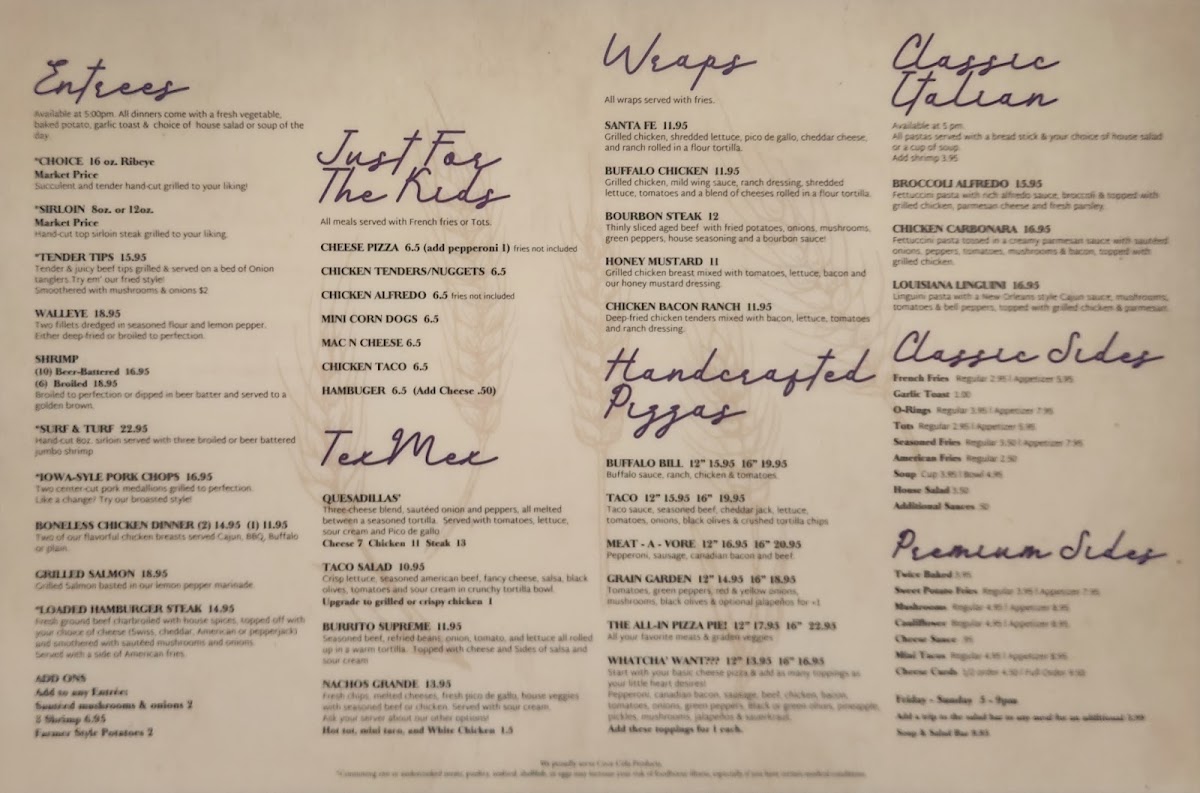 Entrees
Available at 5:00pm. All dinners come with a fresh vegetable,
baked potato, garlic toast & choice of house salad or soup of the
day.
*CHOICE 16 oz. Ribeye
Market Price
Succulent and tender hand-cut grilled to your liking!
*SIRLOIN 8oz. or 12oz.
Market Price
Hand-cut top sirloin steak grilled to your liking.
*TENDER TIPS 15.95
Tender & juicy beef tips grilled & served on a bed of Onion
tanglers Try em' our fried style!
Smoothered with mushrooms & onions $2
WALLEYE 18.95
Two fillets dredged in seasoned flour and lemon pepper.
Either deep-fried or broiled to perfection.
SHRIMP
(10) Beer-Battered 16.95
(6) Broiled 18.95
Broiled to perfection or dipped in beer batter and served to a
golden brown.
*SURF & TURF 22.95
Hand-cut 8oz. sirloin served with three broiled or beer battered
jumbo shrimp
*IOWA-SYLE PORK CHOPS 16.95
Two center-cut pork medallions grilled to perfection.
Like a change? Try our broasted style!
BONELESS CHICKEN DINNER (2) 14.95 (1) 11.95
Two of our flavorful chicken breasts served Cajun, BBQ, Buffalo
or plain.
GRILLED SALMON 18.95
Grilled Salmon basted in our lemon pepper marinade.
*LOADED HAMBURGER STEAK 14.95
Fresh ground beef charbroiled with house spices, topped off with
your choice of cheese (Swiss, cheddar, American or pepperjack)
and smothered with sautéed mushrooms and onions.
Served with a side of American fries.
ADD ONS
Add to any Entrée:
Sauteed mushrooms & onions 2
3 Shrimp 6.95
Farmer Style Potatoes 2
Just For
The Kids
All meals served with French fries or Tots.
CHEESE PIZZA 6.5 (add pepperoni 1) fries not included
CHICKEN TENDERS/NUGGETS 6.5
CHICKEN ALFREDO 6.5 fries not included
MINI CORN DOGS 6.5
MAC N CHEESE 6.5
CHICKEN TACO 6.5
HAMBUGER 6.5 (Add Cheese .50)
TexMex
QUESADILLAS'
Three cheese blend, sautéed onion and peppers, all melted
between a seasoned tortilla. Served with tomatoes, lettuce,
sour cream and Pico de gallo
Cheese 7 Chicken 11 Steak 13
TACO SALAD 10.95
Crisp lettuce, seasoned american beef, fancy cheese, salsa, black
olives, tomatoes and sour cream in crunchy tortilla bowl.
Upgrade to grilled or crispy chicken 1
BURRITO SUPREME 11.95
Seasoned beef, refried beans, onion, tomato, and lettuce all rolled
up in a warm tortilla. Topped with cheese and Sides of salsa and
sour cream
NACHOS GRANDE 13.95
Fresh chips, melted cheeses, fresh pico de gallo, house veggies
with seasoned beef or chicken. Served with sour cream.
Ask your server about our other options!
Hot tot, mini taco, and White Chicken 1.5
Wraps
All wraps served with fries.
SANTA FE 11.95
Grilled chicken, shredded lettuce, pico de gallo, cheddar cheese,
and ranch rolled in a flour tortilla.
BUFFALO CHICKEN 11.95
Grilled chicken, mild wing sauce, ranch dressing, shredded
lettuce, tomatoes and a blend of cheeses rolled in a flour tortilla.
BOURBON STEAK 12
Thinly sliced aged beef with fried potatoes, onions, mushrooms,
green peppers, house seasoning and a bourbon sauce!
HONEY MUSTARD 11
Grilled chicken breast mixed with tomatoes, lettuce, bacon and
our honey mustard dressing.
CHICKEN BACON RANCH 11.95
Deep-fried chicken tenders mixed with bacon, lettuce, tomatoes
and ranch dressing.
Handcrafted
Pizzas
BUFFALO BILL 12" 15.95 16" 19.95
Buffalo sauce, ranch, chicken & tomatoes.
TACO 12" 15.95 16" 19.95
Taco sauce, seasoned beef, cheddar jack, lettuce,
tomatoes, onions, black olives & crushed tortilla chips
MEAT - A - VORE 12" 16.95 16" 20.95
Pepperoni, sausage, canadian bacon and beef.
GRAIN GARDEN 12" 14.95 16" 18.95
Tomatoes, green peppers, red & yellow onions,
mushrooms, black olives & optional jalapeños for +1
THE ALL-IN PIZZA PIE! 12" 17.95 16" 22.95
All your favorite meats & graden veggies
WHATCHA' WANT??? 12" 13.95 16" 16.95
Start with your basic cheese pizza & add as many toppings as
your little heart desires!
Pepperoni, canadian bacon, sausage, beef, chicken, bacon,
tomatoes, onions, green peppers, Black or green olives, pineapple,
pickles, mushrooms, jalapeños & sauerkraut.
Add these toppings for 1 each.
Classic
Italian
Available at 5 pm.
All pastas served with a bread stick & your choice of house salad
or a cup of soup.
Add shrimp 3.95
BROCCOLI ALFREDO 15.95
Fettuccini pasta with rich alfredo sauce, broccoli & topped with
grilled chicken, parmesan cheese and fresh parsley.
CHICKEN CARBONARA 16.95
Fettuccini pasta tossed in a creamy parmesan sauce with sautéed
onions, peppers, tomatoes, mushrooms & bacon, topped with
grilled chicken.
LOUISIANA LINGUINI 16.95
Linguini pasta with a New Orleans style Cajun sauce, mushrooms,
tomatoes & bell peppers, topped with grilled chicken & parmesan.
Classic Sides
French Fries Regular 2.95 | Appetizer 5.95
Garlic Toast 1.00
O-Rings Regular 3.95 | Appetizer 7.95
Tots Regular 2.95 | Appetizer 5.95
Seasoned Fries Regular 3.50 | Appetizer 7.95
American Fries Regular 2.50
Soup Cup 3.95 | Bowl 4.95
House Salad 3.50
Additional Sauces .50
Premium Sides
Twice Baked 3.95
Sweet Potato Fries Regular 3.95 | Appetizer 7.95
Mushrooms Regular 4.95 | Appetizer 8.95
Cauliflower Regular 4.95 | Appetizer 8.95
Cheese Sauce .95
Mini Tacos Regular 4.95 | Appetizer 8.95
Cheese Curds 1/2 order 4.50 | Full Order 9.50
Friday - Sunday 5 - 9pm
Add a trip to the salad bar to any meal for an additional 3.99
Soup & Salad Bar 8.95
We proudly serve Coca-Cola Products.
*Consuming raw or undercooked meats, poultry, seafood, shellfish, or eggs may increase your risk of foodborne illness, especially if you have certain medical conditions.